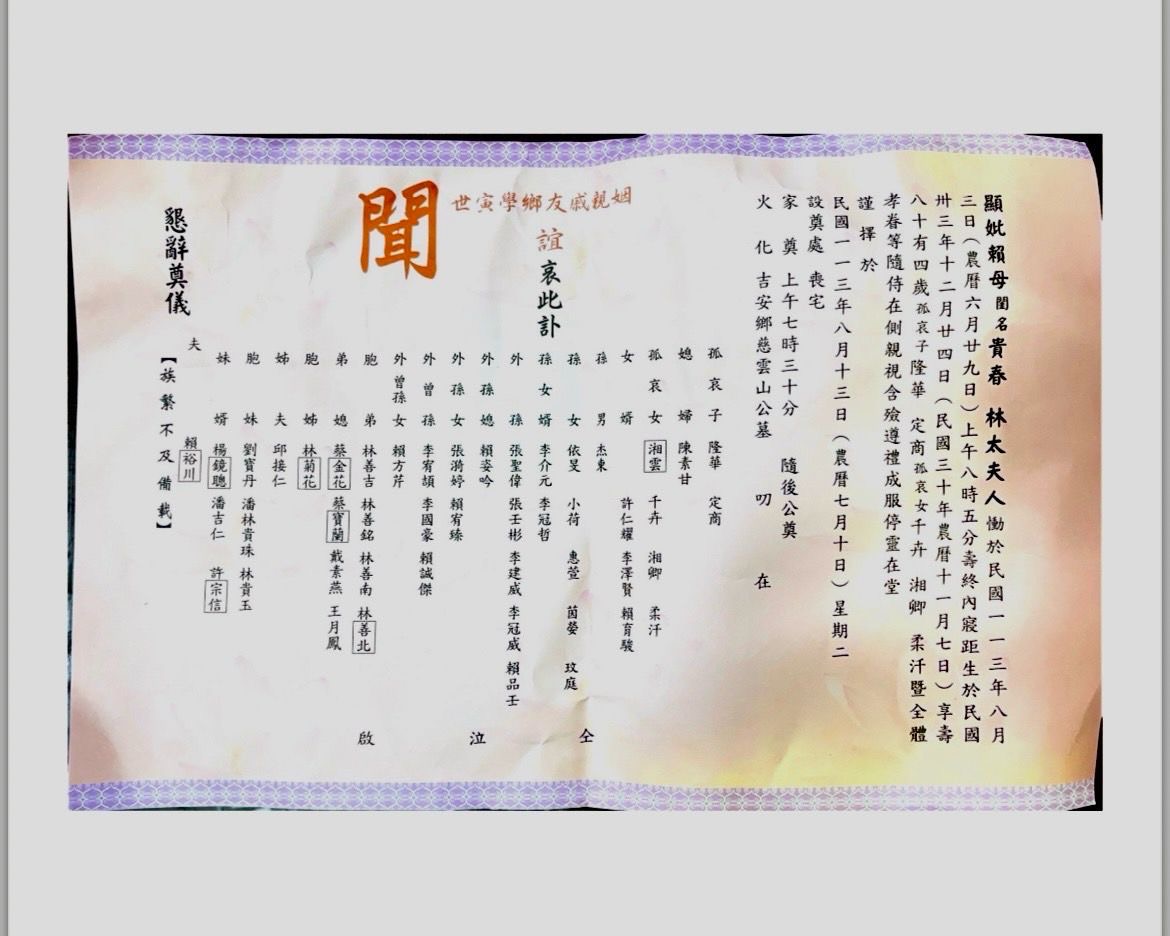 顯妣賴母閨名貴春 林太夫人 慟於民國一一三年八月
三日(農曆六月廿九日)上午八時五分壽終內寢距生於民國
卅三年十二月廿四日(民國三十年農曆十一月七日)享壽
八十有四歲孤哀子隆華 定商孤哀女千卉 湘卿 柔汗暨全體
孝眷等隨侍在側親視含殮遵禮成服停靈在堂
謹擇於
民國一一三年八月十三日(農曆七月十日)星期二
設奠處 喪宅
家奠 上午七時三十分 隨後公奠
火化 吉安鄉慈雲山公墓 叨在
姻親戚友鄉學寅世
誼 哀此訃
聞
孤哀子 隆華 定商
媳婦 陳素甘
孤哀女 湘雲 千卉 湘卿 柔汗
女婿 許仁耀 李澤賢 賴育駿
孫男 杰東
孫女 依旻 小荷 惠萱 茵嫈 玟庭
孫女婿 李介元 李冠哲
外孫 張聖偉 張壬彬 李建威 李冠威 賴品壬
外孫媳 賴姿吟
外孫女 張漪婷 賴宥臻
外曾孫 李宥頡 李國豪 賴誠傑
外曾孫女 賴方芹
胞弟 林善吉 林善銘 林善南 林善北
弟媳 蔡金花 蔡寶蘭 戴素燕 王月鳳
胞姊 林菊花
姊夫 邱接仁
胞妹 劉寶丹 潘林貴珠 林貴玉
妹婿 楊鏡聰 潘吉仁 許宗信
夫 賴裕川
仝 泣 啟
【族繁不及備載】
懇辭奠儀